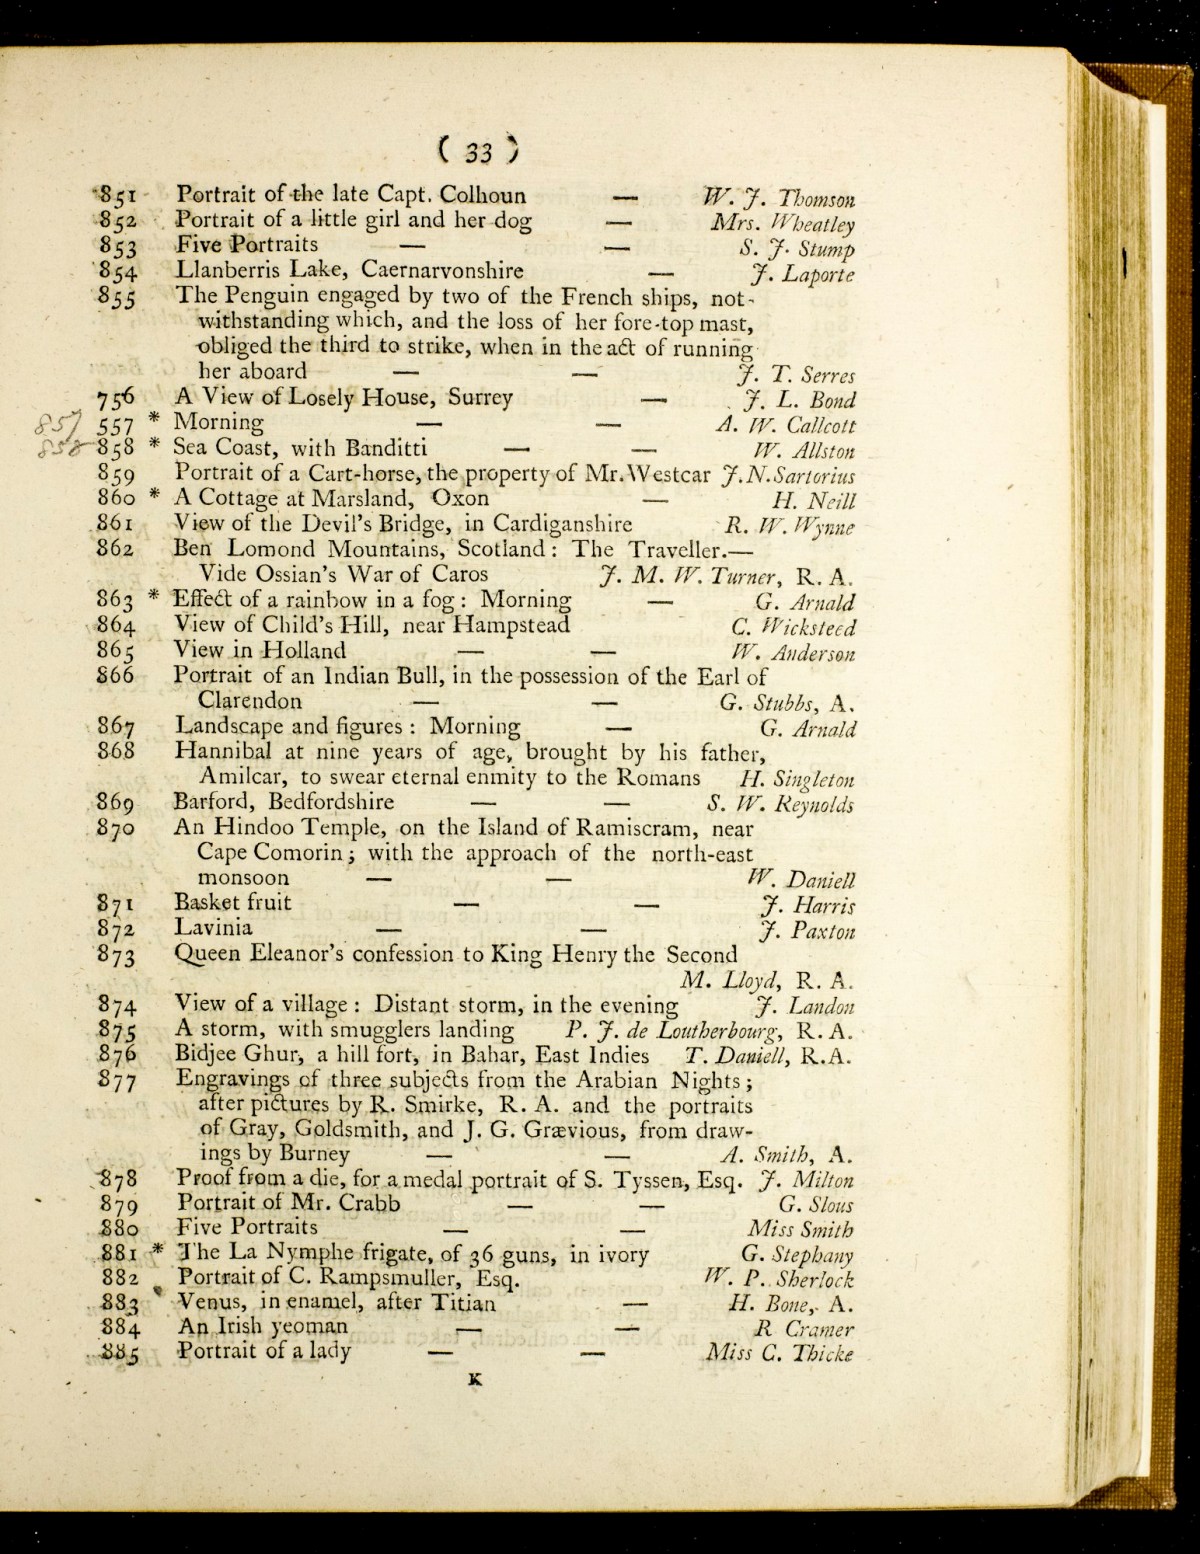 ( 33 )
851 Portrait of the late Capt. Colhoun — W. J. Thomson
852 Portrait of a little girl and her dog — Mrs. Wheatley
853 Five Portraits — — S. J. Stump
854 Llanberris Lake, Caernarvonshire — J. Laporte
855 The Penguin engaged by two of the French ships, not-
withstanding which, and the loss of her fore-top mast,
obliged the third to strike, when in the act of running
her aboard — — J. T. Serres
756 A View of Losely House, Surrey — J. L. Bond
857 557 * Morning — — A. W. Callcott
858 858 * Sea Coast, with Banditti — — W. Allston
859 Portrait of a Cart-horse, the property of Mr. Westcar J. N. Sartorius
860 * A Cottage at Marsland, Oxon — H. Neill
861 View of the Devil's Bridge, in Cardiganshire R. W. Wynne
862 Ben Lomond Mountains, Scotland: The Traveller.—
Vide Ossian's War of Caros J. M. W. Turner, R. A.
863 * Effect of a rainbow in a fog: Morning — G. Arnald
864 View of Child's Hill, near Hampstead C. Wicksteed
865 View in Holland — — W. Anderson
866 Portrait of an Indian Bull, in the possession of the Earl of
Clarendon — — G. Stubbs, A.
867 Landscape and figures: Morning — G. Arnald
868 Hannibal at nine years of age, brought by his father,
Amilcar, to swear eternal enmity to the Romans H. Singleton
869 Barford, Bedfordshire — — S. W. Reynolds
870 An Hindoo Temple, on the Island of Ramiscram, near
Cape Comorin; with the approach of the north-east
monsoon — — W. Daniell
871 Basket fruit — — J. Harris
872 Lavinia — — J. Paxton
873 Queen Eleanor's confession to King Henry the Second
M. Lloyd, R. A.
874 View of a village: Distant storm, in the evening J. Landon
875 A storm, with smugglers landing P. J. de Loutherbourg, R. A.
876 Bidjee Ghur, a hill fort, in Bahar, East Indies T. Daniell, R.A.
877 Engravings of three subjects from the Arabian Nights;
after pictures by R. Smirke, R. A. and the portraits
of Gray, Goldsmith, and J. G. Grævious, from draw-
ings by Burney — — A. Smith, A.
878 Proof from a die, for a medal portrait of S. Tyssen, Esq. J. Milton
879 Portrait of Mr. Crabb — — G. Slous
880 Five Portraits — — Miss Smith
881 * The La Nymphe frigate, of 36 guns, in ivory G. Stephany
882 Portrait of C. Rampsmuller, Esq. W. P. Sherlock
883 Venus, in enamel, after Titian — H. Bone, A.
884 An Irish yeoman — — R Cramer
885 Portrait of a lady — — Miss C. Thicke
K